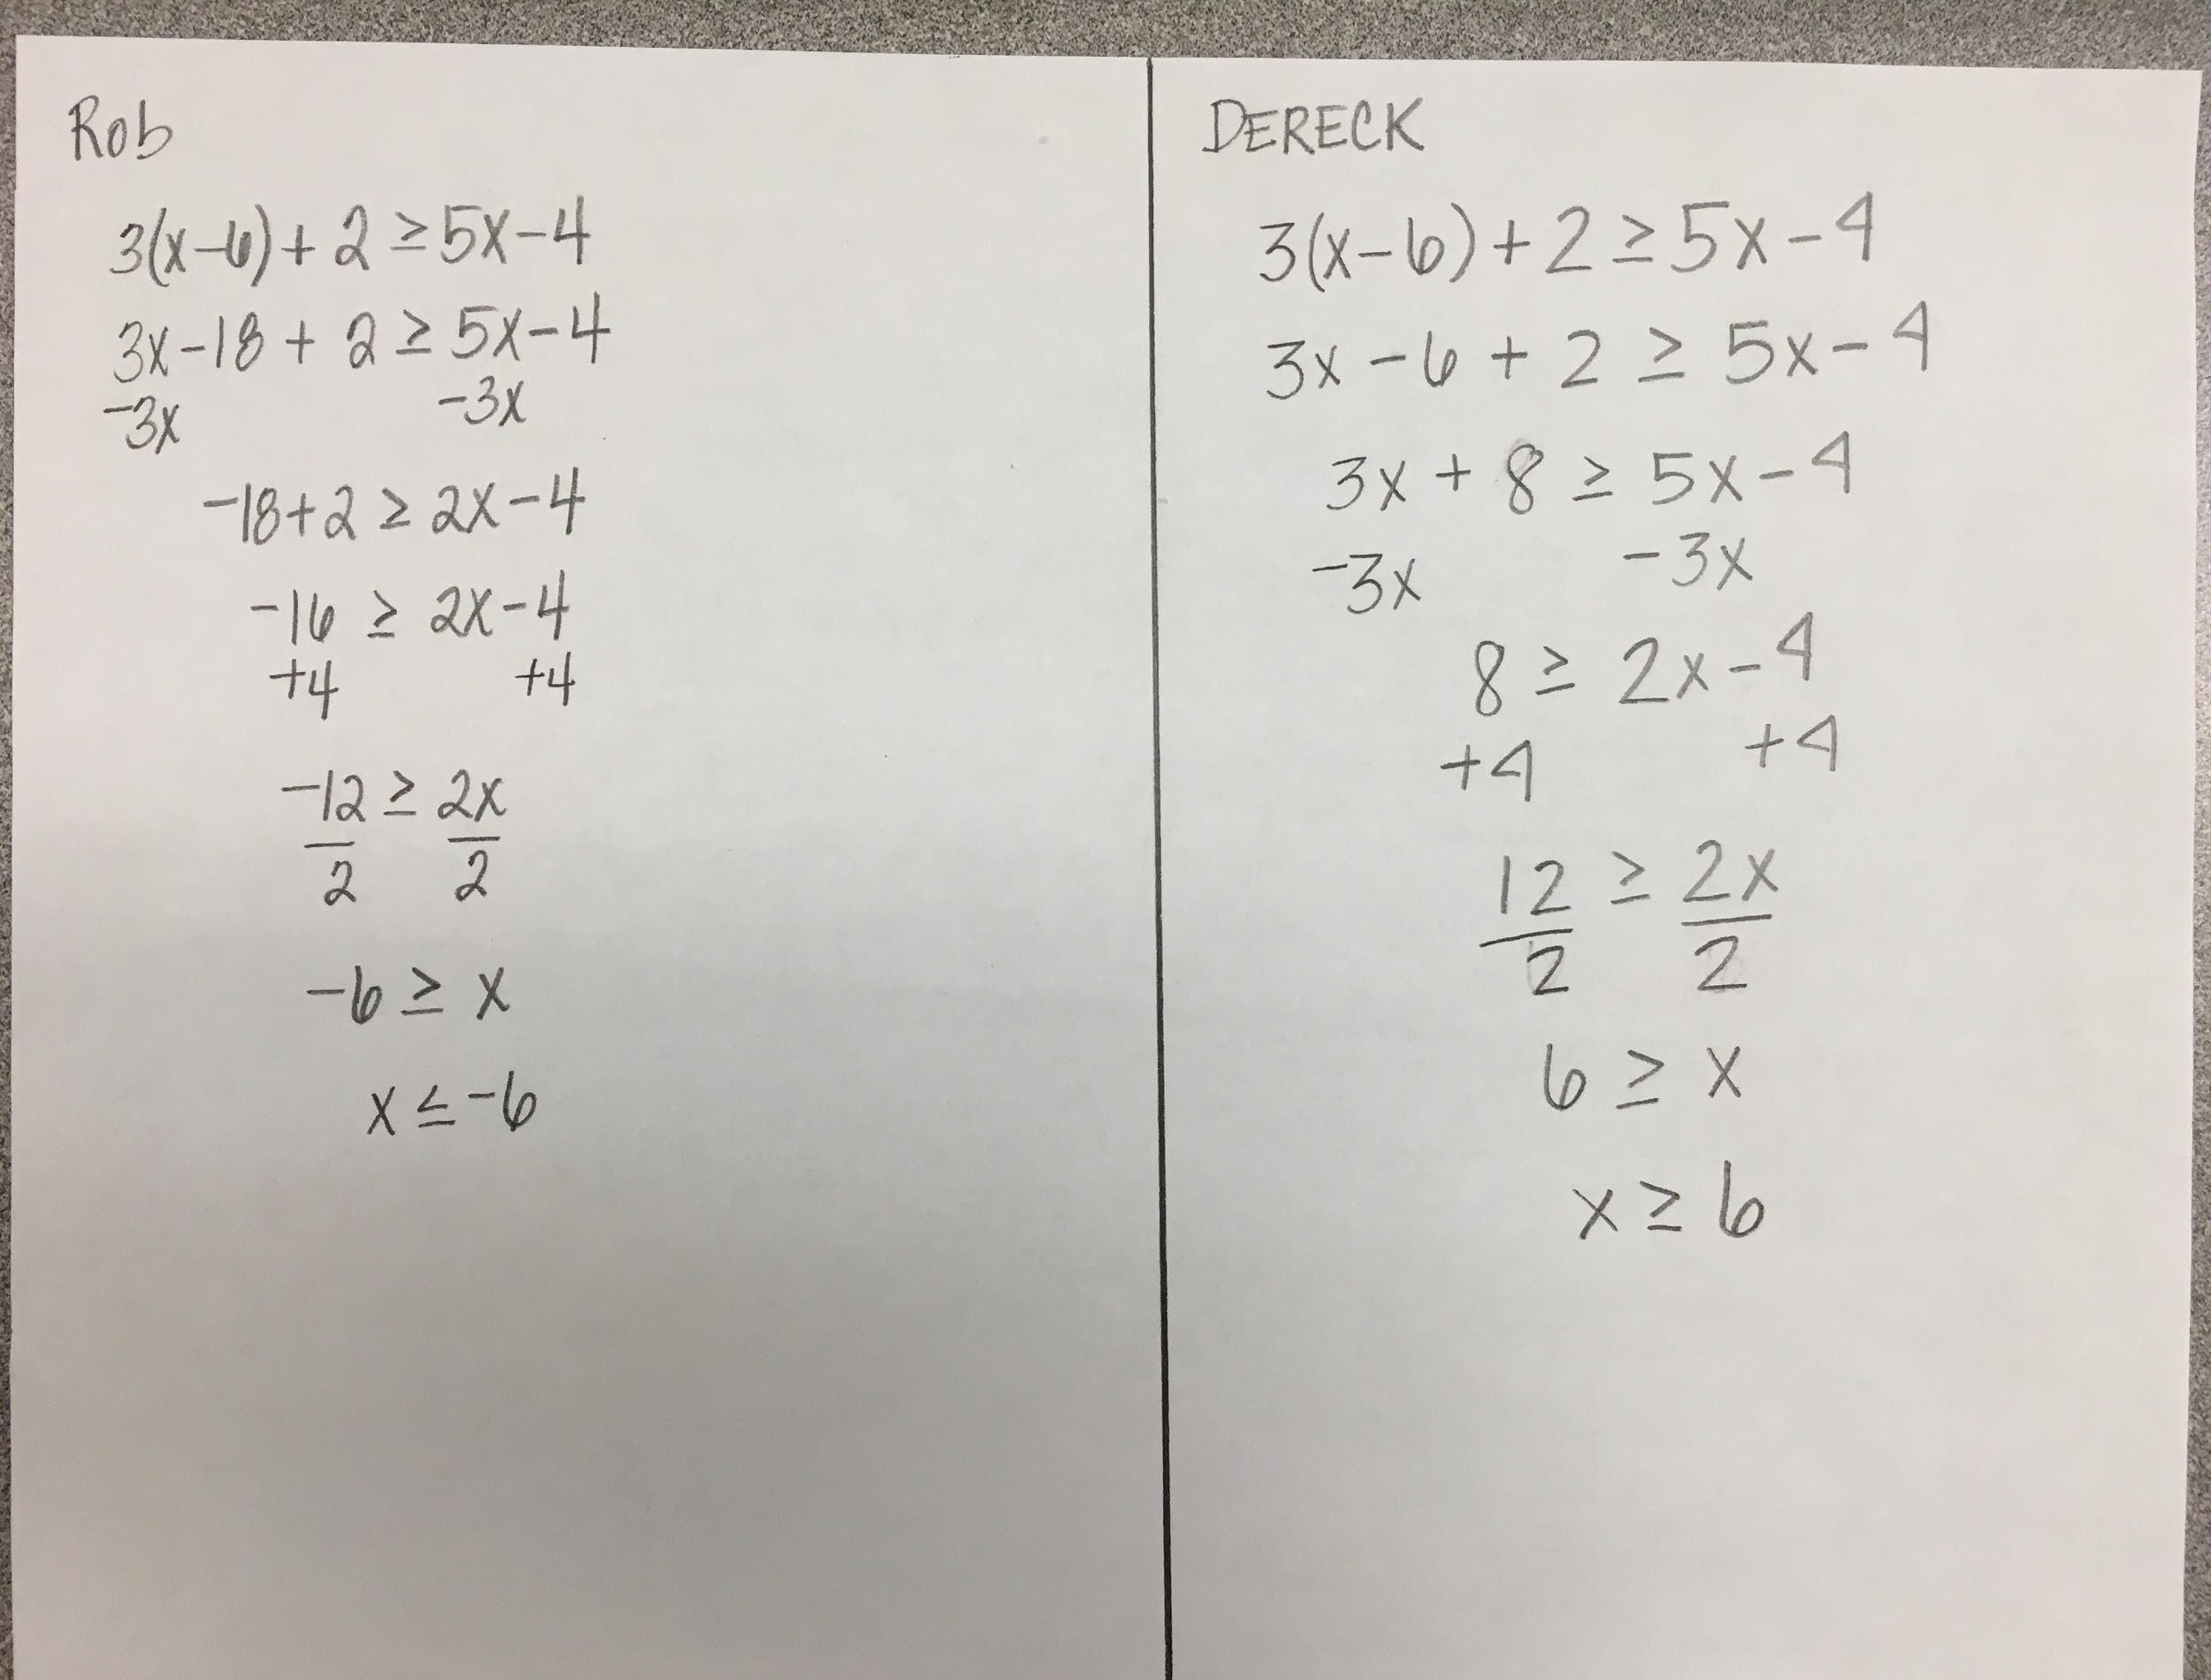 Rob
3(x-6)+ 2 ≥ 5x-4
3x-18 + 2 ≥ 5x-4
-3x -3x
-18+2 ≥ 2x-4
-16 ≥ 2x-4
+4 +4
-12 ≥ 2x
2 2
-6 ≥ x
x ≤ -6
DERECK
3(x-6)+2 ≥ 5x-4
3x - 6 + 2 ≥ 5x-4
3x + 8 ≥ 5x-4
-3x -3x
8 ≥ 2x-4
+4 +4
12 ≥ 2x
2 2
6 ≥ x
x ≥ 6